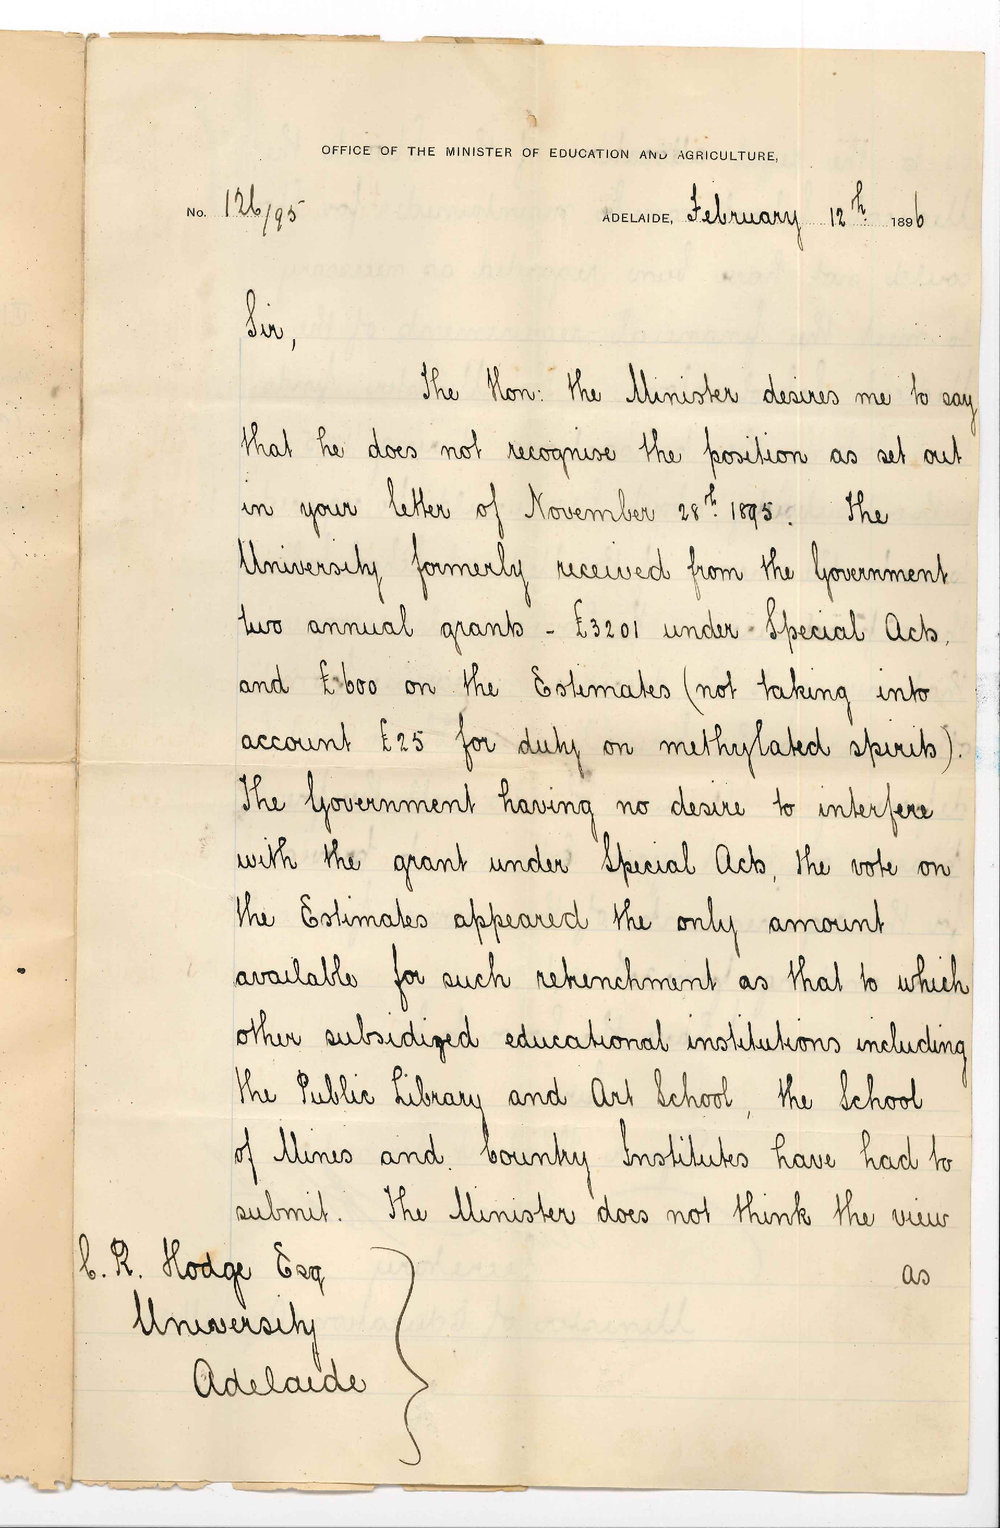 OFFICE OF THE MINISTER OF EDUCATION AND AGRICULTURE,
No. 126/95 ADELAIDE, February 12th 1896
Sir,
The Hon: the Minister desires me to say
that he does not recognise the position as set out
in your letter of November 28th 1895. The
University formerly received from the Government
two annual grants - £3201 under Special Acts,
and £600 on the Estimates (not taking into
account £25 for duty on methylated spirits).
The Government having no desire to interfere
with the grant under Special Acts, the vote on
the Estimates appeared the only amount
available for such retrenchment as that to which
other subsidized educational institutions including
the Public Library and Art School, the School
of Mines and Country Institutes have had to
submit. The Minister does not think the view
as
C. R. Hodge Esq
University
Adelaide